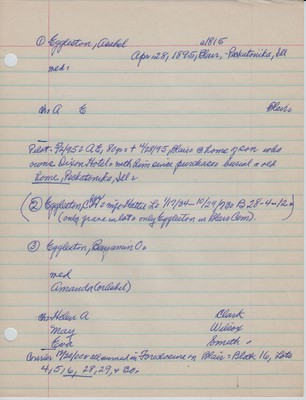 ① Eggleston, Asahel a1815
Apr 28, 1895, Blair, - Pecatonica, Ill
med:
ch: A E Blair
Pilot: 5/2/95: A E, 80 yrs + 4/28/95, Blair @ home of son who
owns Dixon Hotel = with him since purchase = burial @ old
home, Pecatonica, Ill =
(② Eggleston, = mfo Hattie Lo 1/17/84 - 10/29/1730 B-28-4-12
(only grave in lot & only Eggleston in Blair Cem).
③ Eggleston, Benjamin O.
med
Amanda (or Isabel)
ch: Helen A Clark
May Wilcox
Eva Smith
Courier 10/20/00 = all named in Foreclosure in Blair = Block 16, Lots
4, 5, 16, 28, 29, + 30.